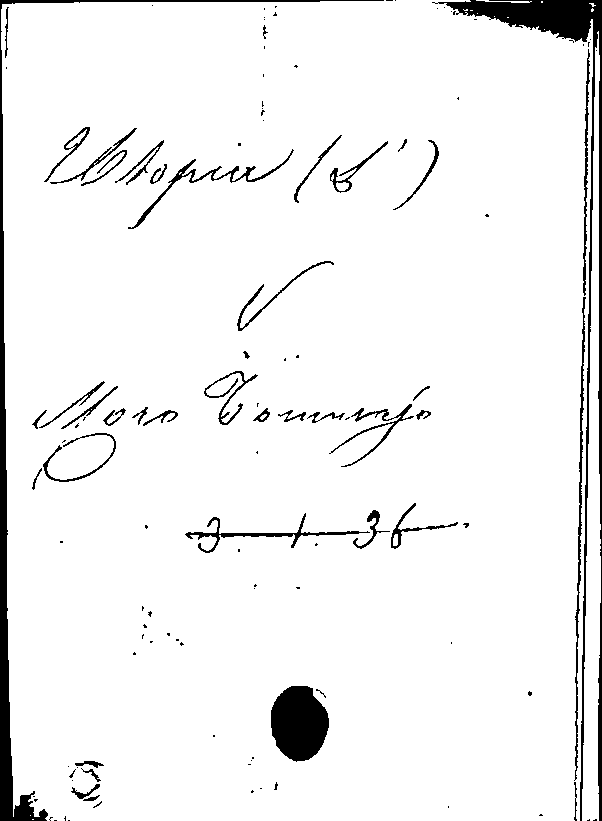 Utopia (L')
V
Moro Tommaso
3 1 36